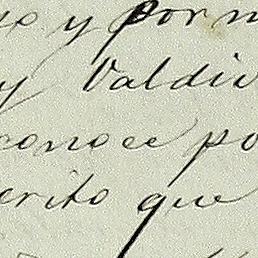 y por
y Valdiv
conoce po
crito que